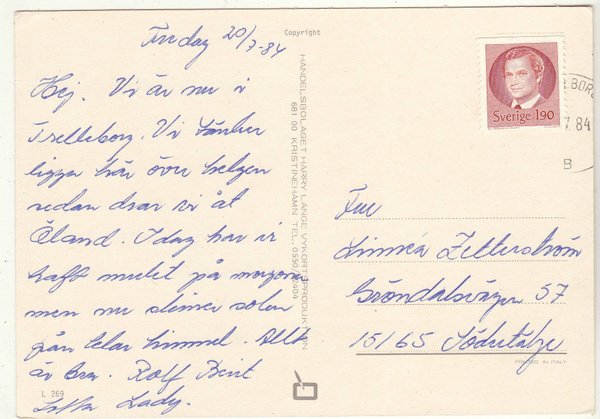 Copyright
Fredag 20/7-84
Hej. Vi är nu i
Trelleborg. Vi tänker
ligga här över helgen
sedan drar vi åt
Öland. Idag har vi
haft mulet på morgonen
men nu skiner solen
från klar himmel. Allt
är bra. Rolf Berit
Lady.
L 269
HANDELSBOLAGET HARRY LANGE VYKORTSPRODUKTION
681 00 KRISTINEHAMN TEL. 0550/
Sverige 190
BORG
7 84
B
Fru
Linnéa Zetterström
Gröndalsvägen 57
15165 Södertälje
PRINTED IN ITALY